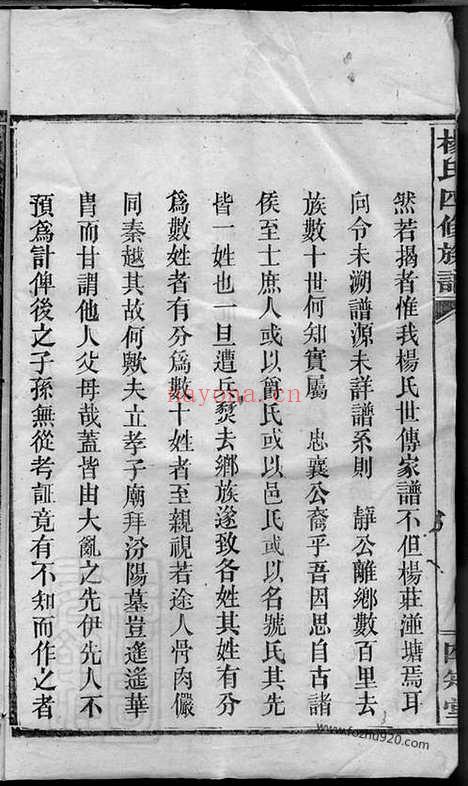 楊氏四修族譜
四知堂
然若揭者惟我楊氏世傳家譜不但楊莊湴塘焉耳
向令未溯譜源未詳譜系則 靜公離鄉數百里去
族數十世何知實屬 忠襄公裔乎吾因思自古諸
侯至士庶人或以爵氏或以邑氏或以名號氏其先
皆一姓也一旦遭兵燹去鄉族遂致各姓其姓有分
為數姓者有分為數十姓者至親視若途人骨肉儼
同秦越其故何歟夫立孝子廟拜汾陽墓豈遙遙華
胄而甘謂他人父母哉蓋皆由大亂之先伊先人不
預為計俾後之子孫無從考証竟有不知而作之者
nayona.cn
www.fozhu920.com